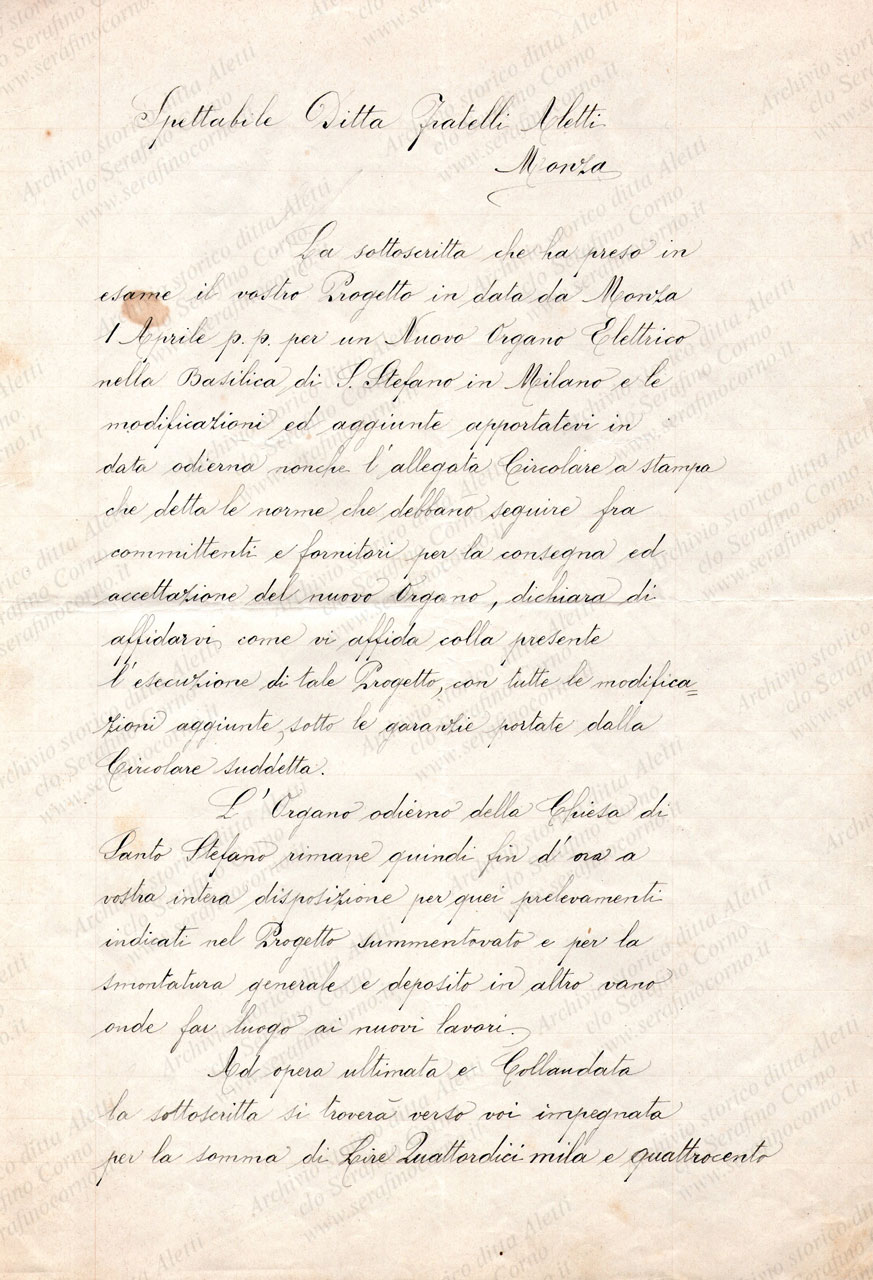 Spettabile Ditta Fratelli Aletti
Monza
La sottoscritta che ha preso in
esame il vostro Progetto in data da Monza
1 Aprile p. p. per un Nuovo Organo Elettrico
nella Basilica di S. Stefano in Milano e le
modificazioni ed aggiunte apportatevi in
data odierna nonche l'allegata Circolare a stampa
che detta le norme che debbano seguire fra
committenti e fornitori per la consegna ed
accettazione del nuovo Organo, dichiara di
affidarvi come vi affida colla presente
l'esecuzione di tale Progetto, con tutte le modifica=
zioni aggiunte, sotto le garanzie portate dalla
Circolare suddetta.
L'Organo odierno della Chiesa di
Santo Stefano rimane quindi fin d'ora a
vostra intera disposizione per quei prelevamenti
indicati nel Progetto summentovato e per la
smontatura generale e deposito in altro vano
onde far luogo ai nuovi lavori.
Ad opera ultimata e Collaudata
la sottoscritta si troverà verso voi impegnata
per la somma di Lire Quattordici mila e quattrocento
Archivio storico ditta Aletti
c/o Serafino Corno
www.serafinocorno.it